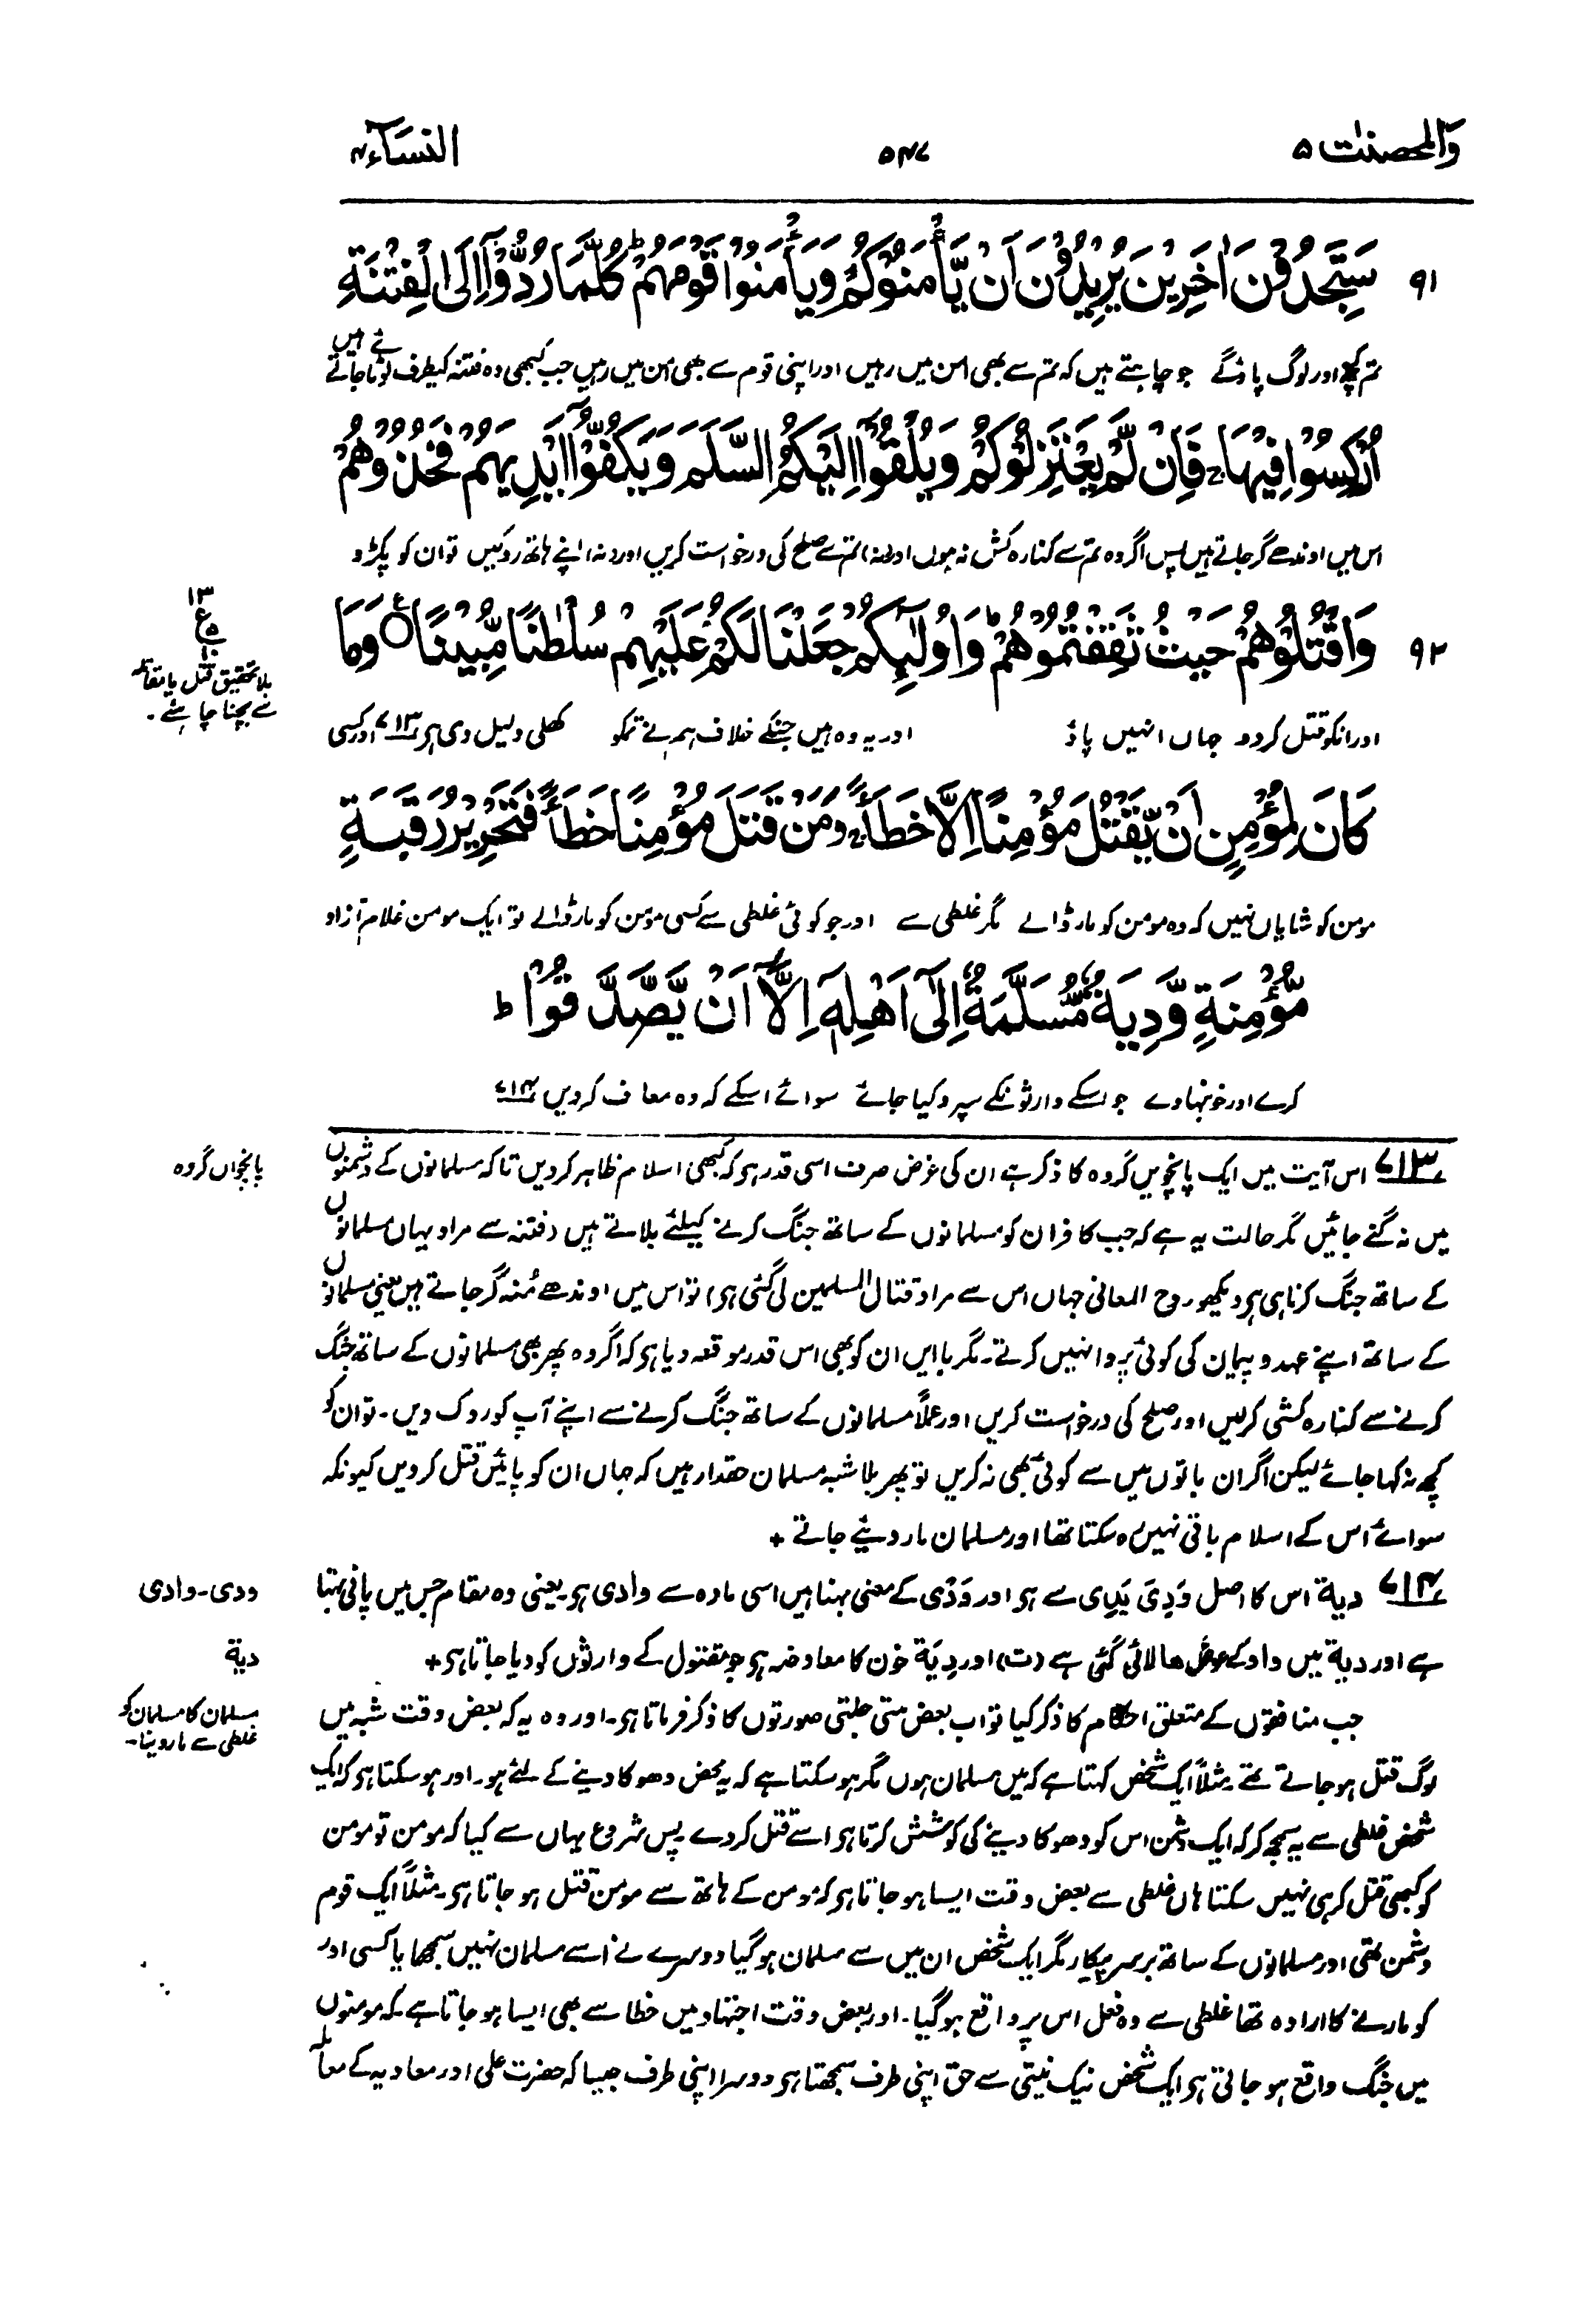 والمحصنٰت ۵
۵۴۷
النسآء ۴
۹۱ سَتَجِدُوْنَ اٰخَرِيْنَ يُرِيْدُوْنَ اَنْ يَّاْمَنُوْكُمْ وَيَاْمَنُوْا قَوْمَهُمْ ؕ كُلَّمَا رُدُّوْۤا اِلَى الْفِتْنَةِ
تم کچھ اور لوگ پاؤ گے جو چاہتے ہیں کہ تم سے بھی امن میں رہیں اور اپنی قوم سے بھی امن میں رہیں جب کبھی وہ فتنہ کیطرف لوٹائے جاتے ہیں
اُرْكِسُوْا فِيْهَا ۚ فَاِنْ لَّمْ يَعْتَزِلُوْكُمْ وَيُلْقُوْۤا اِلَيْكُمُ السَّلَمَ وَيَكُفُّوْۤا اَيْدِيَهُمْ فَخُذُوْهُمْ
اس میں اوندھے گر جاتے ہیں پس اگر وہ تم سے کنارہ کش نہ ہوں اور (نہ) تم سے صلح کی درخواست کریں اور (نہ) اپنے ہاتھ روکیں تو ان کو پکڑو
۹۲ وَاقْتُلُوْهُمْ حَيْثُ ثَقِفْتُمُوْهُمْ ؕ وَاُولٰٓئِكُمْ جَعَلْنَا لَكُمْ عَلَيْهِمْ سُلْطٰنًا مُّبِيْنًا ۧ وَمَا
۱۳
ع
بلا تحقیق قتل یا مقاتلہ
سے بچنا چاہئے۔
اور انکو قتل کردو جہاں انہیں پاؤ اور یہ وہ ہیں جنکے خلاف ہم نے تمکو کھلی دلیل دی ہر ۷۱۳ اور کسی
كَانَ لِمُؤْمِنٍ اَنْ يَّقْتُلَ مُؤْمِنًا اِلَّا خَطَـًٔا ۚ وَمَنْ قَتَلَ مُؤْمِنًا خَطَـًٔا فَتَحْرِيْرُ رَقَبَةٍ
مومن کو شایاں نہیں کہ وہ مومن کو مار ڈالے مگر غلطی سے اور جو کوئی غلطی سے کسی مومن کو مار ڈالے تو ایک مومن غلام آزاد
مُّؤْمِنَةٍ وَّدِيَةٌ مُّسَلَّمَةٌ اِلٰۤى اَهْلِهٖۤ اِلَّاۤ اَنْ يَّصَّدَّقُوْا ؕ
کرے اور خونبہا دے جو اسکے وارثونکے سپرد کیا جائے سوائے اسکے کہ وہ معاف کردیں ۷۱۴
۷۱۳ اس آیت میں ایک پانچویں گروہ کا ذکر ہے ان کی غرض صرف اسی قدر ہر کہ کبھی اسلام ظاہر کردیں تاکہ مسلمانوں کے دشمنوں
پانچواں گروہ
میں نہ گنے جائیں مگر حالت یہ ہے کہ جب کافر ان کو مسلمانوں کے ساتھ جنگ کرنے کیلئے بلاتے ہیں (فتنہ سے مراد یہاں مسلمانوں
کے ساتھ جنگ کرنا ہی ہر دیکھو روح المعانی جہاں اس سے مراد قتال المسلمین لی گئی ہر) تو اس میں اوندھے منہ گر جاتے ہیں یعنی مسلمانوں
کے ساتھ اپنے عہد و پیمان کی کوئی پروا نہیں کرتے۔ مگر باایں ان کو بھی اس قدر موقعہ دیا ہر کہ اگر وہ پھر بھی مسلمانوں کے ساتھ جنگ
کرنے سے کنارہ کشی کرلیں اور صلح کی درخواست کریں اور عملاً مسلمانوں کے ساتھ جنگ کرنے سے اپنے آپ کو روک دیں۔ تو ان کو
کچھ نہ کہا جائے لیکن اگر ان باتوں میں سے کوئی بھی نہ کریں تو پھر بلاشبہ مسلمان حقدار ہیں کہ جہاں ان کو پائیں قتل کردیں کیونکہ
سوائے اس کے اسلام باقی نہیں رہ سکتا تھا اور مسلمان مار دیئے جاتے +
۷۱۴ دیۃ اس کا اصل وَدِیَ یَدِی سے ہر اور وَدْی کے معنی بہنا ہیں اسی مادہ سے وادی ہر۔ یعنی وہ مقام جس میں پانی بہتا
ودی۔ وادی
ہے اور دیۃ میں واو کے عوض ھا لائی گئی ہے (ت) اور دِیَۃ خون کا معاوضہ ہر جو مقتول کے وارثوں کو دیا جاتا ہر+
دیۃ
جب منافقوں کے متعلق احکام کا ذکر کیا تو اب بعض ملتی جلتی صورتوں کا ذکر فرماتا ہر۔ اور وہ یہ کہ بعض وقت شبہ میں
مسلمان کا مسلمان کو
غلطی سے مار دینا۔
لوگ قتل ہو جاتے تھے۔ مثلاً ایک شخص کہتا ہے کہ میں مسلمان ہوں مگر ہو سکتا ہے کہ یہ محض دھوکا دینے کے لئے ہو۔ اور ہو سکتا ہر کہ ایک
شخص غلطی سے یہ سمجھ کر کہ ایک دشمن اس کو دھوکا دینے کی کوشش کرتا ہر اسے قتل کردے پس شروع یہاں سے کیا کہ مومن تو مومن
کو کبھی قتل کر ہی نہیں سکتا ہاں غلطی سے بعض وقت ایسا ہو جاتا ہر کہ مومن کے ہاتھ سے مومن قتل ہو جاتا ہر۔ مثلاً ایک قوم
دشمن تھی اور مسلمانوں کے ساتھ برسر پیکار مگر ایک شخص ان میں سے مسلمان ہو گیا دوسرے نے اسے مسلمان نہیں سمجھا یا کسی اور
کو مارنے کا ارادہ تھا غلطی سے وہ فعل اس پر واقع ہو گیا۔ اور بعض وقت اجتہاد میں خطا سے بھی ایسا ہو جاتا ہے کہ مومنوں
میں جنگ واقع ہو جاتی ہر ایک شخص نیک نیتی سے حق اپنی طرف سمجھتا ہر دوسرا اپنی طرف جیسا کہ حضرت علی اور معاویہ کے معاملہ